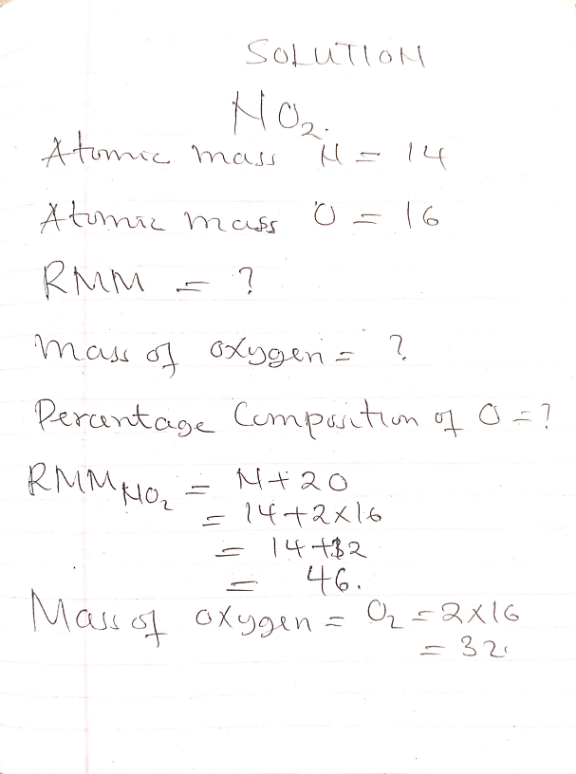 SOLUTION
NO₂.
Atomic mass N = 14
Atomic mass O = 16
RMM = ?
Mass of oxygen = ?
Percentage Composition of O = ?
RMM NO₂ = N + 2O
= 14 + 2 × 16
= 14 + 32
= 46.
Mass of oxygen = O₂ = 2 × 16
= 32.